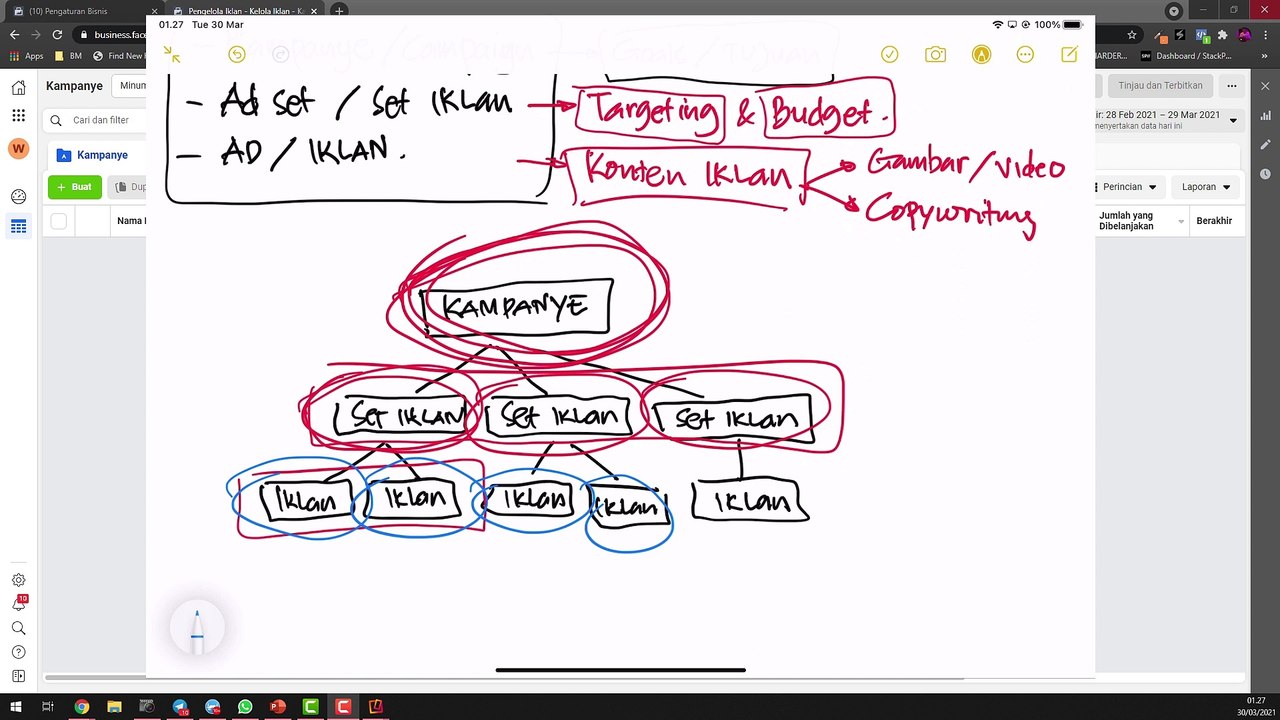 (10) Pengaturan Bisnis
Pengelola Iklan - Kelola Iklan
01.27 Tue 30 Mar
100%
business.face
Apps
BM
Find New F
Dashboard / StackP...
Kampanye
Tinjau dan Terbitkan
- Kampanye / Campaign
Goals / Tujuan
- Ad Set / Set Iklan
Targeting & Budget.
Cari dan filter
28 Feb 2021 – 29 Mar 2021
menyertakan data hari ini
- AD / IKLAN.
Konten IKlan
Gambar/video
Copywriting
Kampanye
+ Buat
Dup
Perincian
Laporan
Nama
Jumlah yang Dibelanjakan
Berakhir
W
KAMPANYE
Set IKLAN
Set IKlan
Set IKlan
Iklan
Iklan
Iklan
Iklan
IKlan
10
01.27
30/03/2021